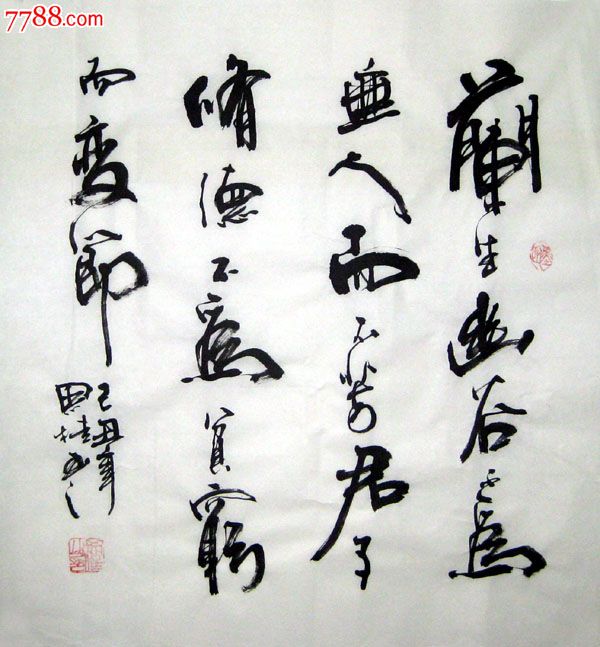 7788.com
蘭生幽谷不為
無人而不芳君子
脩德不為貧窮
而变節
己丑年